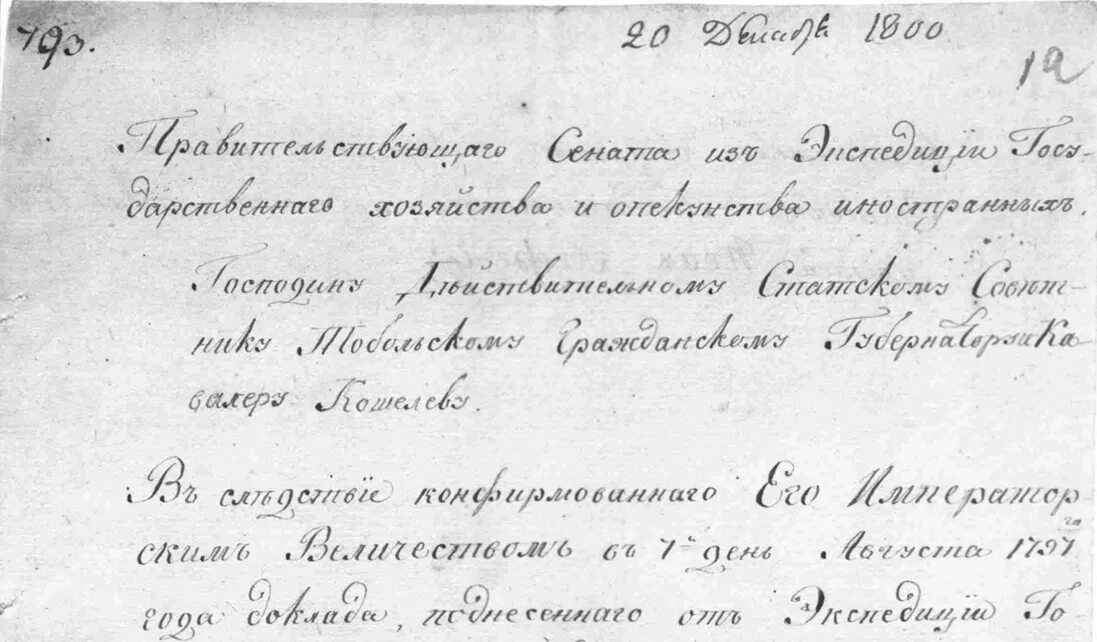 793.
20 Декабр 1800
19
Правительствующаго Сената изъ Экспедиціи Госу-
дарственнаго хозяйства и опекунства иностранныхъ.
Господину Дѣйствительному Статскому Совѣт-
нику Тобольскому Гражданскому Губернатору и Ка
валеру Кошелеву.
Въ слѣдствіе конфирмованнаго Его Император-
скимъ Величествомъ въ 7й день Августа 1797го
года доклада, поднесеннаго отъ Экспедиціи Го-